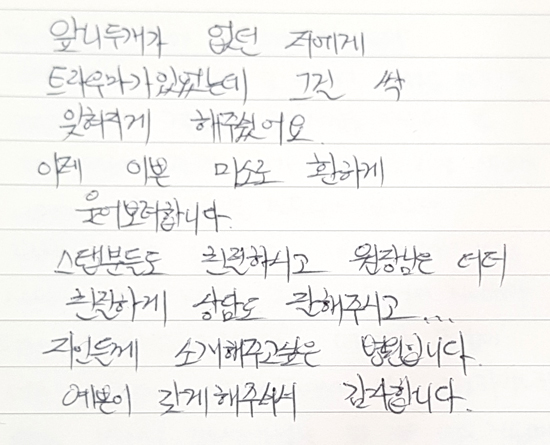 앞니두개가 없던 저에게
트라우마가있었는데 그걸 싹
잊혀지게 해주셨어요
이제 이쁜 미소로 환하게
웃어보려합니다.
스탭분들도 친절하시고 원장님은 더더
친절하게 상담도 잘해주시고...
지인들께 소개해주고싶은 병원입니다.
예쁜이 갖게해주셔서 감사합니다.